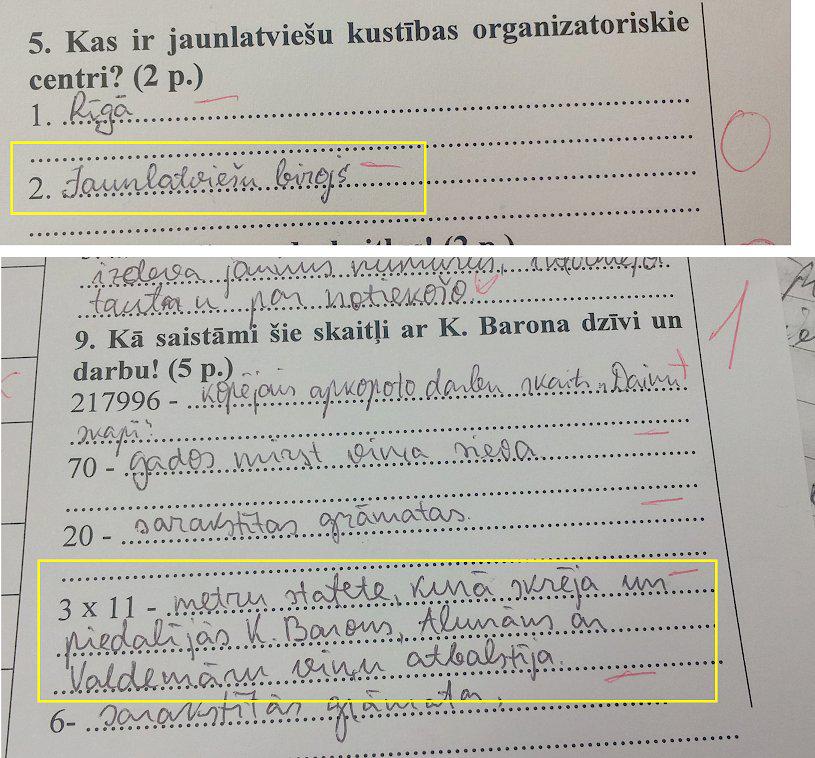 5. Kas ir jaunlatviešu kustības organizatoriskie
centri? (2 p.)
1. Rīgā
2. Jaunlatviešu birojs
0
izdeva jaunus numurus, informēja
tautu par notiekošo.
1
9. Kā saistāmi šie skaitļi ar K. Barona dzīvi un
darbu! (5 p.)
217996 - kopējais apkopoto darbu skaits "Dainu
skapī"
70 - gados mirst viņa sieva
20 - sarakstītas grāmatas.
3 x 11 - metru stafete, kurā skrēja un
piedalījās K. Barons, Alunāns an
Valdemāru viņu atbalstīja.
6- sarakstītās grāmatas.